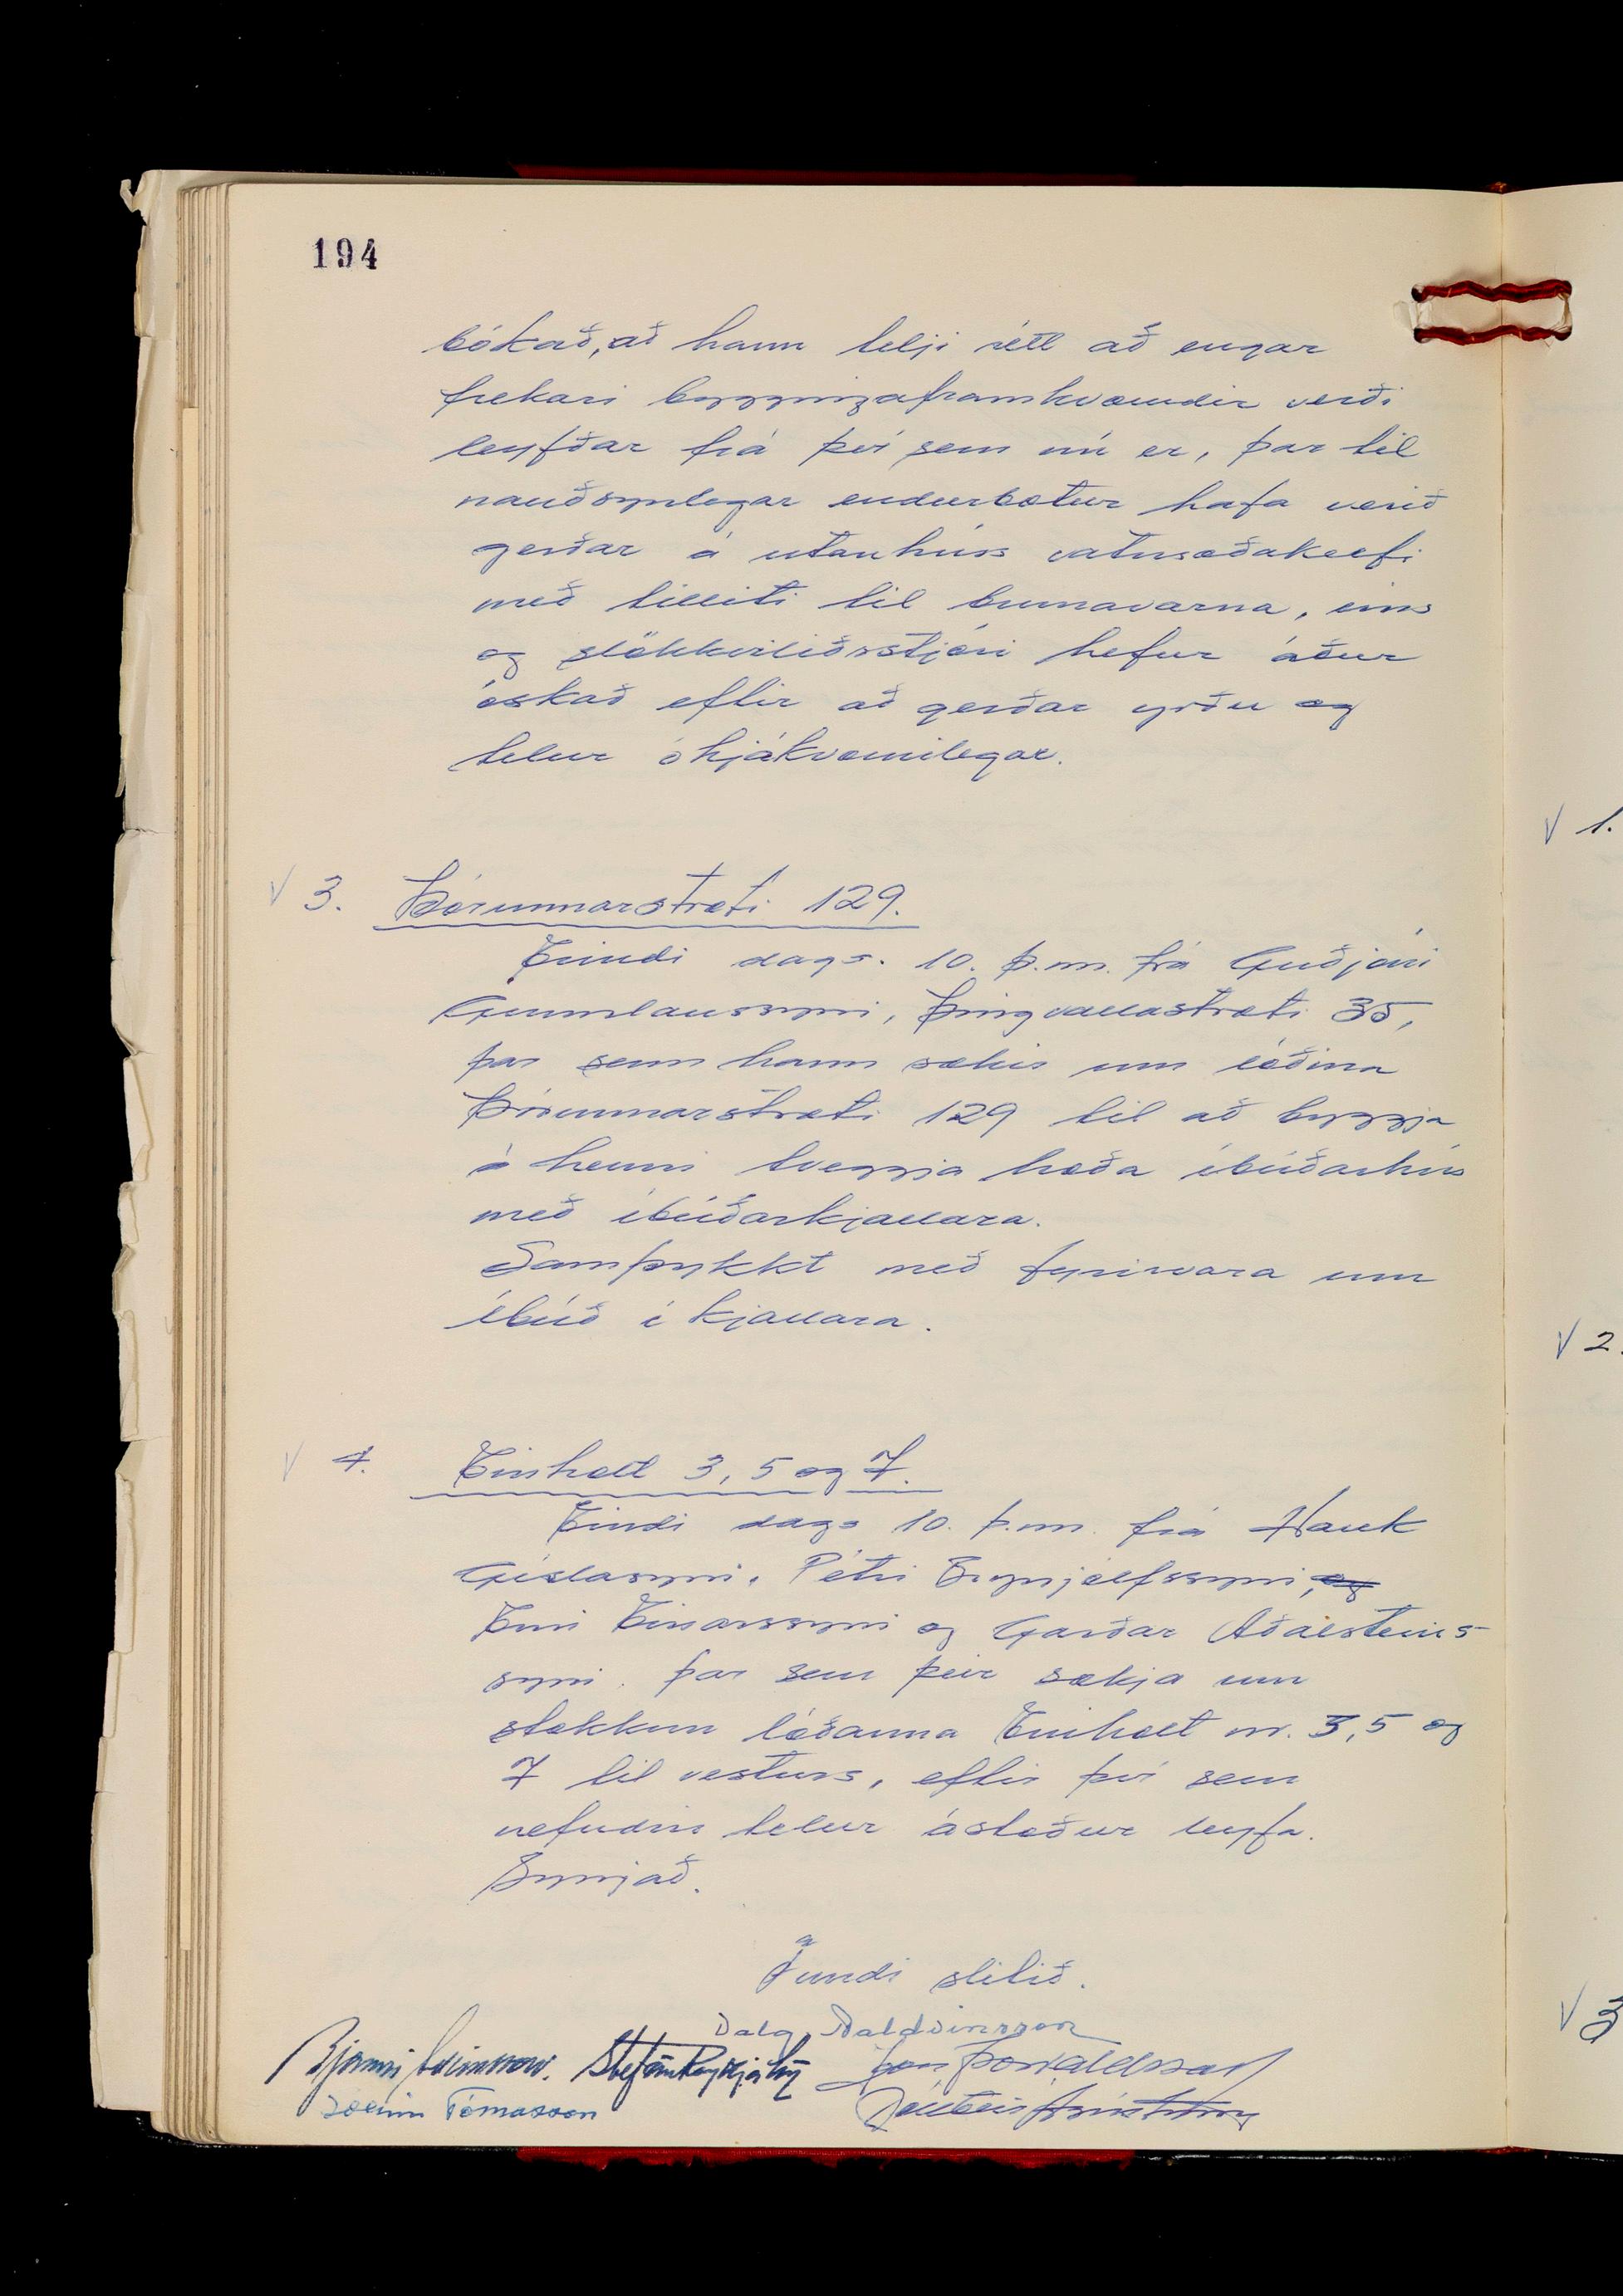 194
bókað, að hann telji rétt að engar
frekari byggingaframkvæmdir verði
leyfðar frá því sem nú er, þar til
nauðsynlegar endurbætur hafa verið
gerðar á utanhúss vatnsæðakerfi
með tilliti til brunavarna, eins
og slökkviliðsstjóri hefur áður
óskað eftir að gerðar yrðu og
telur óhjákvæmilegar.
V 3. Þórunnarstræti 129.
Erindi dags. 10. þ.m. frá Guðjóni
Gunnlaugssyni, Þingvallastræti 35,
þar sem hann sækir um lóðina
Þórunnarstræti 129 til að byggja
á henni tveggja hæða íbúðarhús
með íbúðarkjallara.
Samþykkt með fyrirvara um
íbúð í kjallara.
V 4. Einholt 3, 5 og 7.
Erindi dags 10. þ.m. frá Hauk
Gíslasyni, Pétri Brynjólfssyni, og
Erni Einarssyni og Garðar Aðalsteins-
syni, þar sem þeir sækja um
stækkun lóðanna Einholt nr. 3, 5 og
7 til vesturs, eftir því sem
nefndin telur ástæður leyfa.
Synjað.
Fundi slitið.
Dalg. Baldvinsson
Bjarni Einarsson. Stefán Reykjalín Jón Þorvaldsson
Tómasson
V 1.
V 2.
V 3